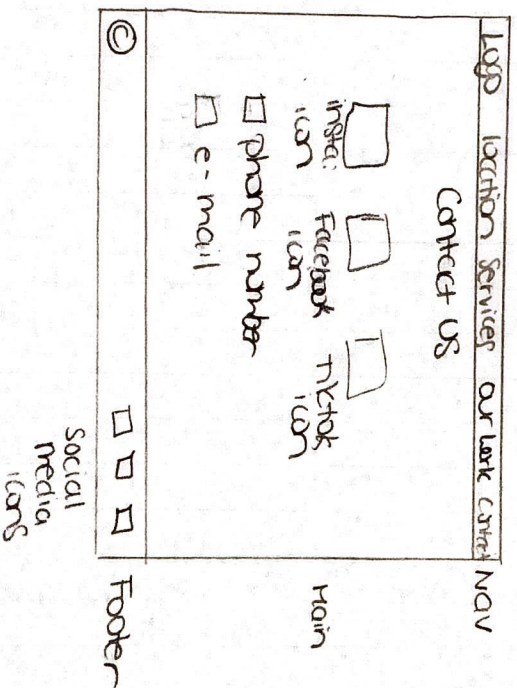 Logo location Services our work contact
Nav
Contact US
insta: icon
Facebook icon
tiktok icon
Main
phone number
e-mail
©
Footer
Social
media
icons